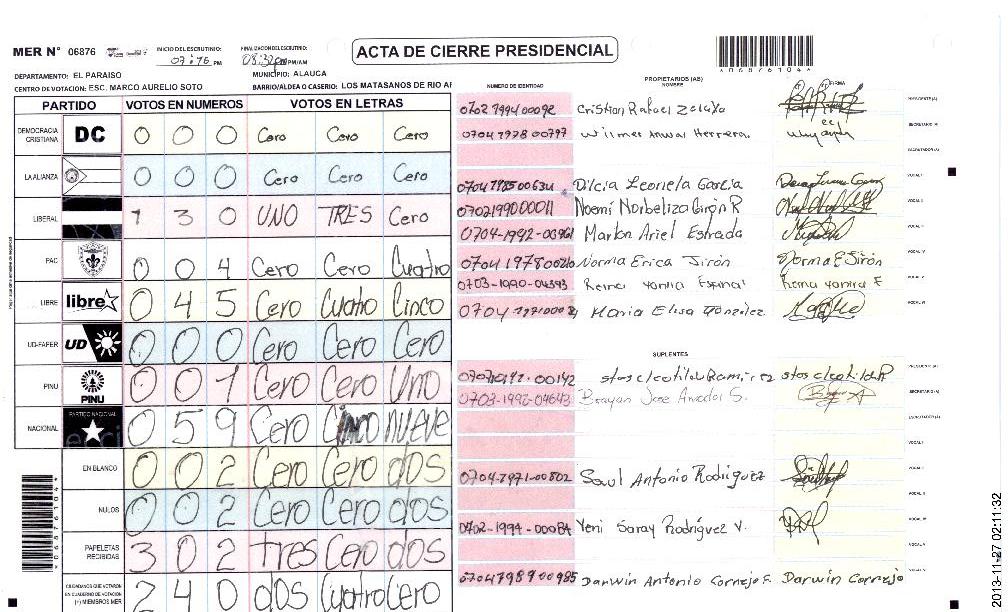 MER N° 06876
INICIO DEL ESCRUTINIO: 07:16 PM
FINALIZACION DEL ESCRUTINIO: 08:32 PM/AM
ACTA DE CIERRE PRESIDENCIAL
*06876104*
DEPARTAMENTO: EL PARAISO
MUNICIPIO: ALAUCA
CENTRO DE VOTACION: ESC. MARCO AURELIO SOTO
BARRIO/ALDEA O CASERIO: LOS MATASANOS DE RIO AR
PARTIDO VOTOS EN NUMEROS VOTOS EN LETRAS
DEMOCRACIA CRISTIANA DC 0 0 0 Cero Cero Cero
LA ALIANZA 0 0 0 Cero Cero Cero
LIBERAL 1 3 0 UNO TRES Cero
PAC 0 0 4 Cero Cero Cuatro
LIBRE libre 0 4 5 Cero Cuatro Cinco
UD-FAPER UD 0 0 0 Cero Cero Cero
PINU PINU 0 0 1 Cero Cero Uno
NACIONAL PARTIDO NACIONAL 0 5 9 Cero Cinco nueve
EN BLANCO 0 0 2 Cero Cero dos
NULOS 0 0 2 Cero Cero dos
PAPELETAS RECIBIDAS 3 0 2 tres Cero dos
CIUDADANOS QUE VOTARON EN CUADERNO DE VOTACION (+) MIEMBROS MER 2 4 0 dos Cuatro Cero
PROPIETARIOS (AS)
NUMERO DE IDENTIDAD NOMBRE FIRMA
0702 1994 00092 Cristian Rafael Zelaya PRESIDENTE (A)
0704 1978 00797 Wilmer Anwar Herrera. SECRETARIO (A)
ESCRUTADOR (A)
0704 1985 00634 Dilcia Leoniela Garcia VOCAL I
0702199000011 Noemí Norbeliza Girón R VOCAL II
0704-1992-00961 Marlon Ariel Estrada VOCAL III
0704 1978 00210 Norma Erica Jirón Norma E Jirón VOCAL IV
0703-1990-04393 Reina Yamira Espinal Reina Yamira E VOCAL V
0704 Maria Elisa González VOCAL VI
SUPLENTES
stos cleotilde Ramirez stos cleotilde R PRESIDENTE (A)
0703-1992-04643 Brayan Jose Amador S. SECRETARIO (A)
ESCRUTADOR (A)
VOCAL I
0704-1971-00802 Saul Antonio Rodriguez VOCAL II
VOCAL III
0702-1994-00084 Yeni Saray Rodríguez V. VOCAL IV
VOCAL V
0704198900985 Darwin Antonio Cornejo F. Darwin Cornejo VOCAL VI
2013-11-27 02:11:32